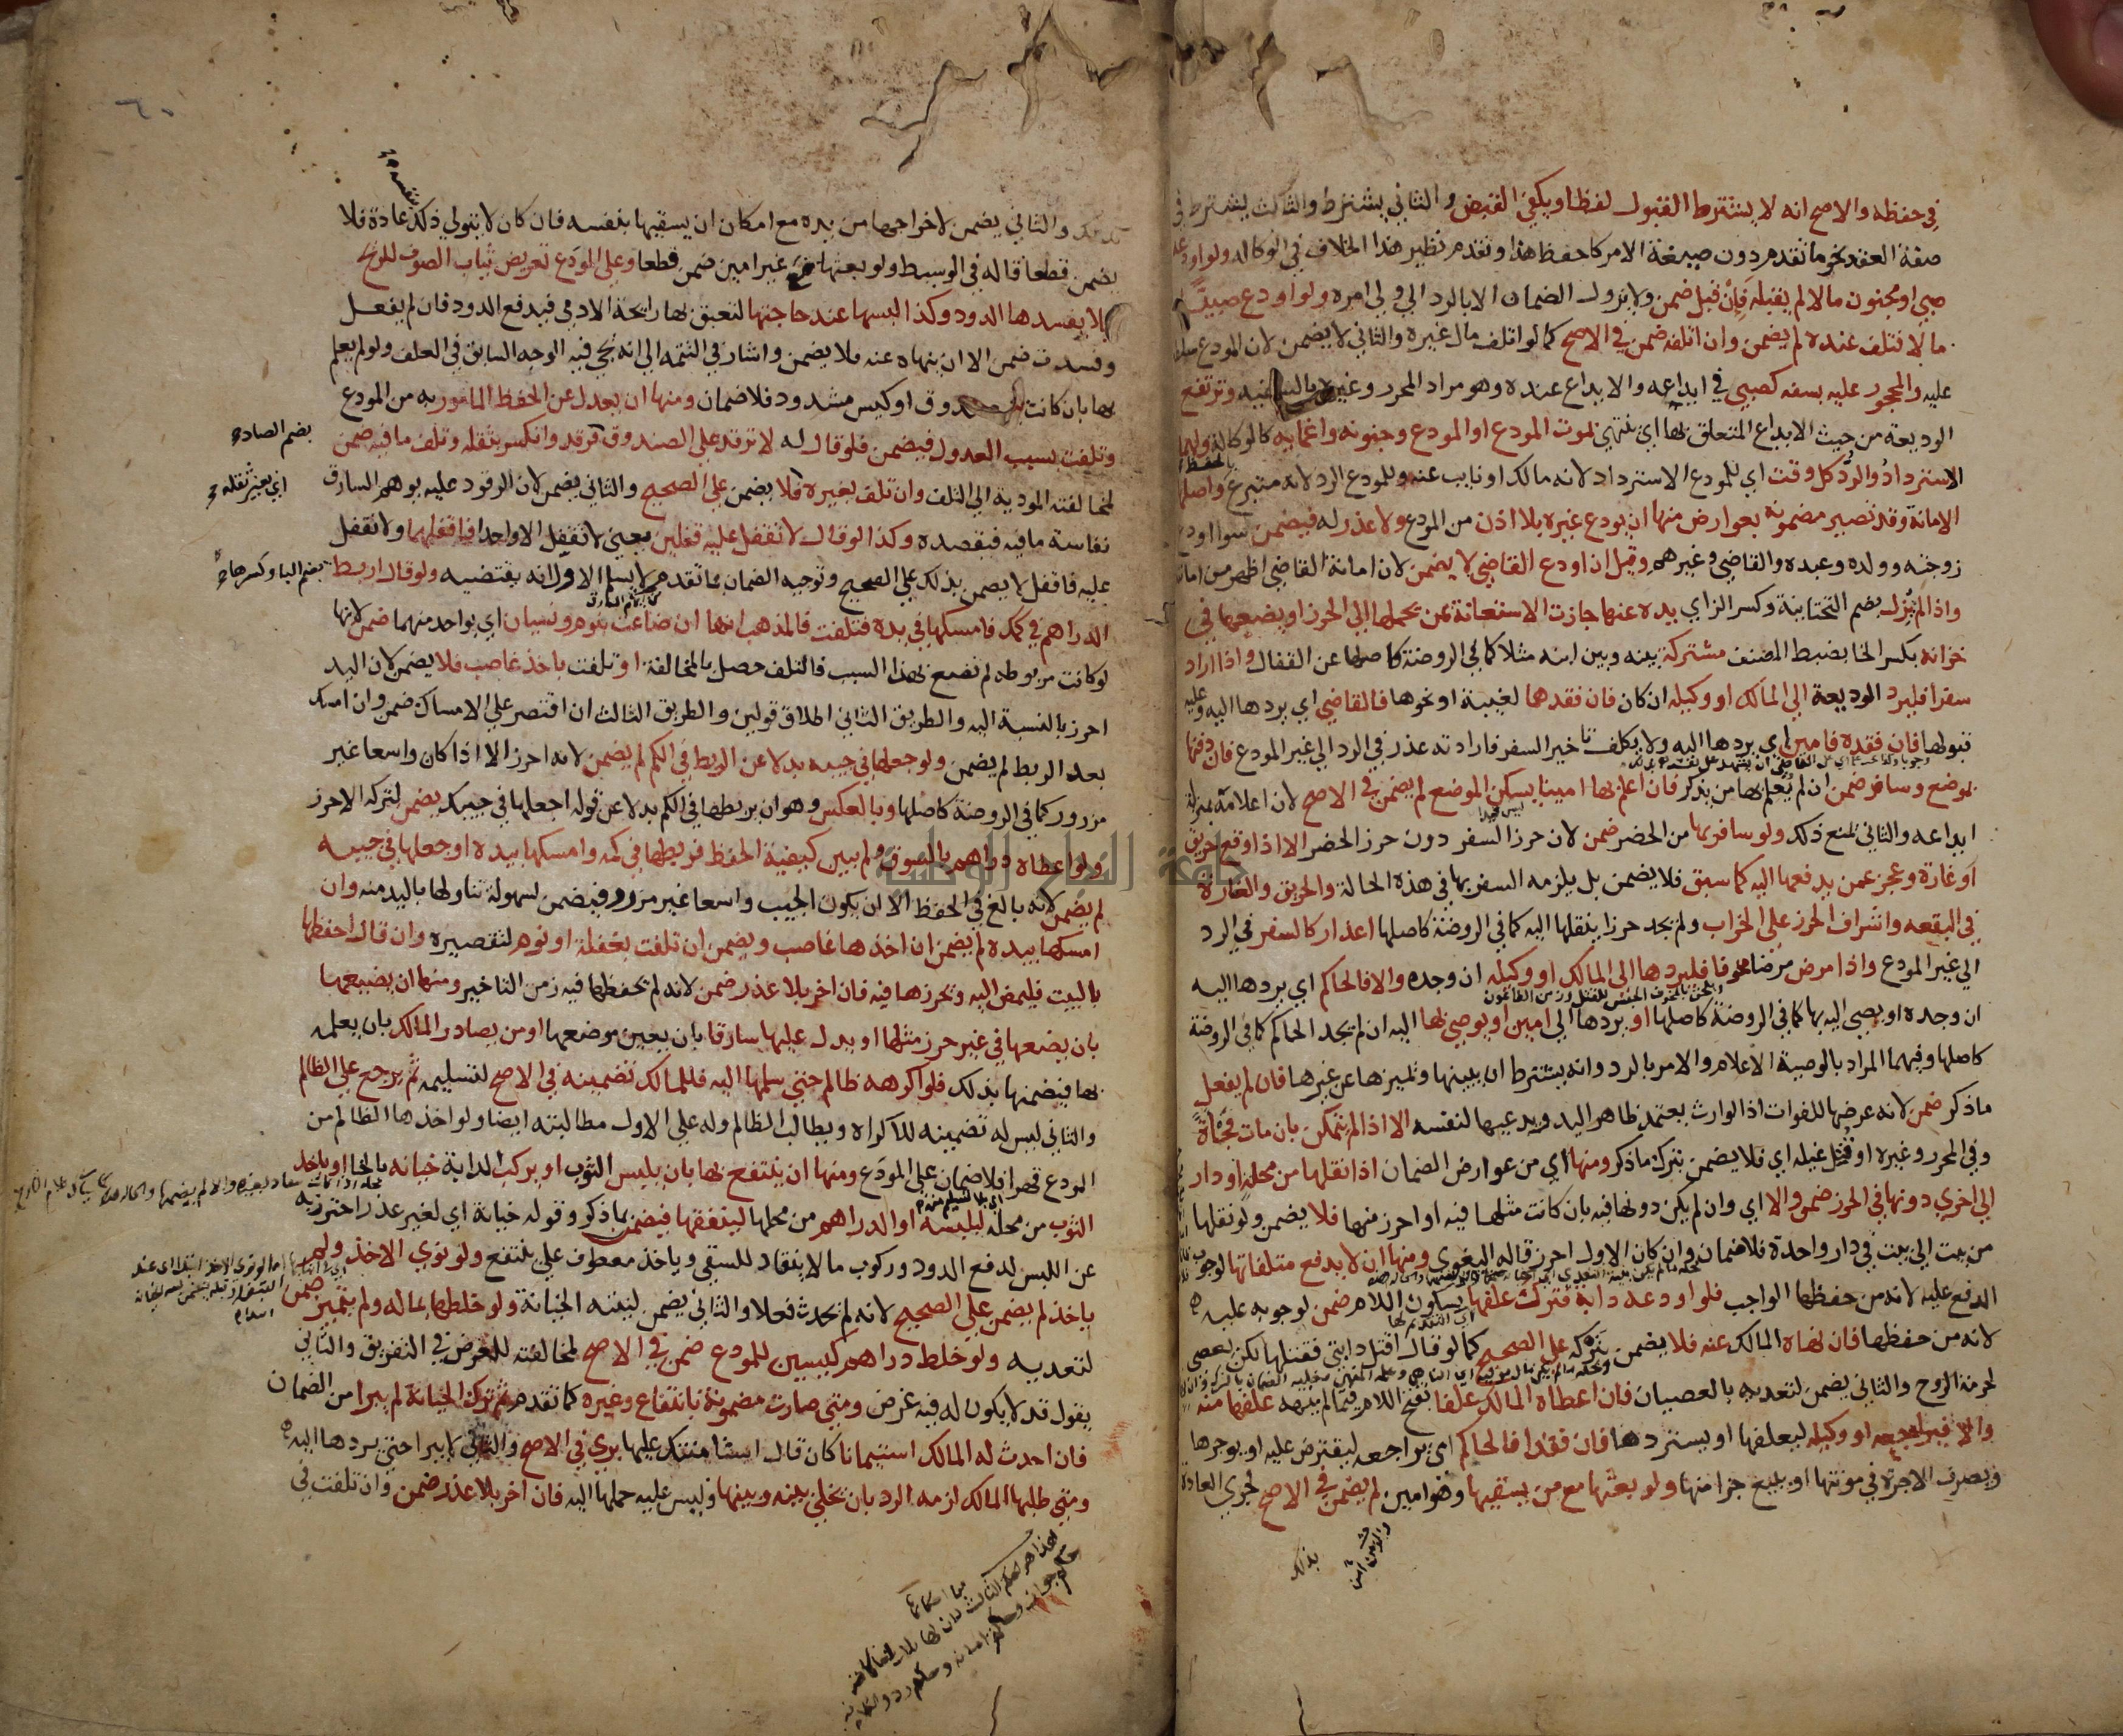 في حفظه والاصح انه لا يشترط القبول لفظا ويكفي القبض والثاني يشترط والثالث يشترط في
صيغة العقد نحو ما تقدم دون صيغة الامر كاحفظ هذا وتقدم نظير هذا الخلاف في الوكالة ولو اودعه
صبي او مجنون مالا لم يقبله فان قبل ضمن ولا يزول الضمان الا بالرد الي ولي امره ولو اودع صبيا
مالا فتلف عنده لم يضمن وان اتلفه ضمن في الاصح كما لو اتلف مال غيره والثاني لا يضمن لان المودع سلطه
عليه والمحجور عليه بسفه كصبي في ايداعه والايداع عنده وهو مراد المحرر وغيره بالسفيه وترتفع
الوديعة من حيث الايداع المتعلق بها اي تنتهي بموت المودع او المودع وجنونه واغمايه كالوكالة ولهما
الاسترداد والرد كل وقت اي للمودع الاسترداد لانه مالك او نايب عنه وللمودع الرد لانه متبرع بالحفظ واصلها
الامانة وقد تصير مضمونة بعوارض منها ان يودع غيره بلا اذن من المودع ولا عذر له فيضمن سوا اودع
زوجته وولده وعبده والقاضي وغيرهم وقيل ان اودع القاضي لا يضمن لان امانة القاضي اظهر من امانته
واذا لم يزل بضم التحتانية وكسر الزاي يده عنها جازت الاستعانة بمن يحملها الي الحرز او يضعها في
خزانة بكسر الخا بضبط المصنف مشتركة بينه وبين ابنه مثلا كما في الروضة كاصلها عن القفال واذا اراد
سفرا فليرد الوديعة الي المالك او وكيله ان كان فان فقدهما لغيبة او نحوها فالقاضي اي يردها اليه وعليه
قبولها فان فقده فامين اي يردها اليه ولا يكلف تاخير السفر فارادته عذر في الرد الي غير المودع فان دفنها
بموضع وسافر ضمن ان لم يعلم بها من يذكر فان اعلم بها امينا يسكن الموضع لم يضمن في الاصح لان اعلامه بمنزلة
ايداعه والثاني يمنع ذلك ولو سافر بها من الحضر ضمن لان حرز السفر دون حرز الحضر الا اذا وقع حريق
او غارة وعجز عمن يدفعها اليه كما سبق فلا يضمن بل يلزمه السفر بها في هذه الحالة والحريق والغارة
في البقعة واشراف الحرز علي الخراب ولم يجد حرزا ينقلها اليه كما في الروضة كاصلها اعذار كالسفر في الرد
الي غير المودع واذا مرض مرضا مخوفا فليردها الي المالك او وكيله ان وجده والا فالحاكم اي يردها اليه
ان وجده او يوصي اليه بها كما في الروضة كاصلها او يردها الي امين او يوصي بها اليه ان لم يجد الحاكم كما في الروضة
كاصلها وفيهما المراد بالوصية الاعلام والامر بالرد وانه يشترط ان يبينها وتميزها عن غيرها فان لم يفعل
ماذكر ضمن لانه عرضها للفوات اذ الوارث يعتمد ظاهر اليد ويدعيها لنفسه الا اذا لم يتمكن بان مات فجأة
وفي المحرر وغيره او قتل غيلة اي فلا يضمن بترك ما ذكر ومنها اي من عوارض الضمان اذا نقلها من محلة او دار
الي اخري دونها في الحرز ضمن والا اي وان لم يكن دونها فيه بان كانت مثلها فيه او احرز منها فلا يضمن ولو نقلها
من بيت الي بيت في دار واحدة فلا ضمان وان كان الاول احرز قاله البغوي ومنها ان لا يدفع متلفاتها لوجوب
الدفع عليه لانه من حفظها الواجب فلو اودعه دابة فترك علفها بسكون اللام ضمن لوجوبه عليه
لانه من حفظها فان نهاه المالك عنه فلا يضمن بتركه علي الصحيح كما لو قال اقتل دابتي فقتلها لكن يعصي
لحرمة الروح والثاني يضمن لتعديه بالعصيان فان اعطاه المالك علفا بفتح اللام فيما لم ينهه علفها منه
والا فيراجعه او وكيله ليعلفها او يستردها فان فقدا فالحاكم اي يراجعه ليقترض عليه او يوجرها
ويصرف الاجرة في مونتها او يبيع جزا منها ولو بعثها مع من يسقيها وهو امين لم يضمن في الاصح لجري العادة
بذلك
بذلك والثاني يضمن لاخراجها من يده مع امكان ان يسقيها بنفسه فان كان لا يتولي ذلك بنفسه عادة فلا
يضمن قطعا قاله في الوسيط ولو بعثها مع غير امين ضمن قطعا وعلي المودع تعريض ثياب الصوف للريح
كيلا يفسدها الدود وكذا البسها عند حاجتها لتعبق بها رايحة الادمي فيدفع الدود فان لم يفعل
وفسدت ضمن الا ان ينهاه عنه فلا يضمن واشار في التتمة الي انه يجي فيه الوجه السابق في العلف ولو لم يعلم
بها بان كانت في صندوق او كيس مشدود فلا ضمان ومنها ان يعدل عن الحفظ المامور به من المودع
وتلفت بسبب العدول فيضمن فلو قال له لا ترقد علي الصندوق فرقد وانكسر بثقله وتلف ما فيه ضمن
بضم الصاد
لمخالفته المودية الي التلف وان تلف بغيره فلا يضمن علي الصحيح والثاني يضمن لان الرقود عليه يوهم السارق
اي بغير ثقله
نفاسة ما فيه فيقصده وكذا لو قال لا تقفل عليه قفلين يعني لا تقفل الا واحدا فاقفلهما ولا تقفل
عليه فاقفل لا يضمن بذلك علي الصحيح وتوجيه الضمان بما تقدم لا يسلم الاول انه يقتضيه ولو قال اربط
بضم البا وكسرها
الدراهم في كمك فامسكها في يده فتلفت فالمذهب انها ان ضاعت بنوم ونسيان اي بواحد منهما ضمن لانها
لو كانت مربوطة لم تضع بهذا السبب فالتلف حصل بالمخالفة او تلفت باخذ غاصب فلا يضمن لان اليد
احرز بالنسبة اليه والطريق الثاني اطلاق قولين والطريق الثالث ان اقتصر علي الامساك ضمن وان امسك
بعد الربط لم يضمن ولو جعلها في جيبه بدلا عن الربط في الكم لم يضمن لانه احرز الا اذا كان واسعا غير
مزرور كما في الروضة كاصلها وبالعكس وهو ان يربطها في الكم بدلا عن قوله اجعلها في جيبك يضمن لتركه الاحرز
ولو اعطاه دراهم بالسوق ولم يبين كيفية الحفظ فربطها في كمه وامسكها بيده او جعلها في جيبه
لم يضمن لانه بالغ في الحفظ الا ان يكون الجيب واسعا غير مزرور فيضمن لسهولة تناولها باليد منه وان
امسكها بيده لم يضمن ان اخذها غاصب ويضمن ان تلفت بغفلة او نوم لتقصيره وان قال احفظها
بالبيت فليمض اليه ويحرزها فيه فان اخر بلا عذر ضمن لانه لم يحفظها فيه زمن التاخير ومنها ان يضيعها
بان يضعها في غير حرز مثلها او يدل عليها سارقا بان يعين موضعها او من يصادر المالك بان يعلمه
بها فيضمنها بذلك فلو اكرهه ظالم حتي سلمها اليه فللمالك تضمينه في الاصح لتسليمه ثم يرجع علي الظالم
والثاني ليس له تضمينه للاكراه ويطالب الظالم وله علي الاول مطالبته ايضا ولو اخذها الظالم من
المودع قهرا فلا ضمان علي المودع ومنها ان ينتفع بها بان يلبس الثوب او يركب الدابة خيانة بالخا او ياخذ
الثوب من محله ليلبسه او الدراهم من محلها لينفقها فيضمن بما ذكر وقوله خيانة اي لغير عذر احترز به
عن اللبس لدفع الدود وركوب ما لا ينقاد للسقي وياخذ معطوف علي ينتفع ولو نوي الاخذ ولم
ياخذ لم يضمن علي الصحيح لانه لم يحدث فعلا والثاني يضمن لنيته الخيانة ولو خلطها بماله ولم يتميز ضمن
لتعديه ولو خلط دراهم كيسين للمودع ضمن في الاصح لمخالفته للغرض في التفريق والثاني
يقول قد لا يكون له فيه غرض ومتي صارت مضمونة بانتفاع وغيره كما تقدم ثم ترك الخيانة لم يبرا من الضمان
فان احدث له المالك استيمانا كان قال استامنتك عليها بري في الاصح والثاني لا يبرا حتي يردها اليه
ومتي طلبها المالك لزمه الرد بان يخلي بينه وبينها وليس عليه حملها اليه فان اخر بلا عذر ضمن وان تلفت في